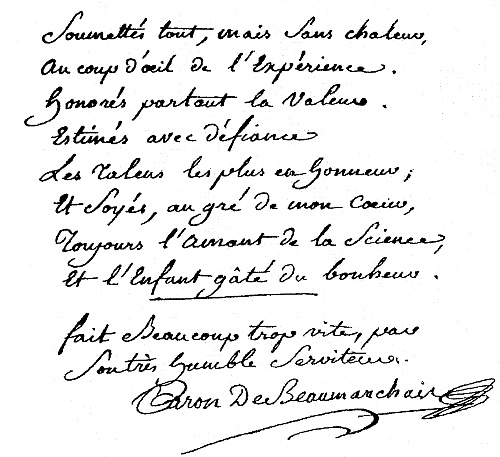 Soumettés tout, mais Sans chaleur,
Au coup d'œil de l'Expérience.
Honorés partout la Valeur.
Estimés avec défiance
Les Talens les plus en honneur;
Et Soyés, au gré de mon Cœur,
Toujours l'Amant de la Science,
Et l'Enfant gâté du bonheur.
fait Beaucoup trop vite, par
Son très humble Serviteur.
Caron De Beaumarchais